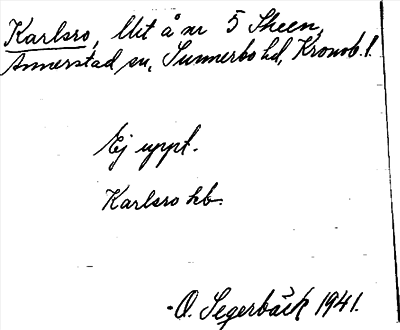 Karlsro, lht å nr 5 Skeen,
Annerstad sn, Sunnerbo hd, Kronob. l.
Ej uppt.
Karlsro hb.
O. Segerbäck 1941.